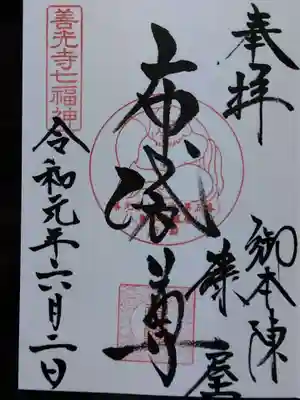 奉拝
御本陳
藤屋
布袋尊
善光寺七福神
令和元年六月二日